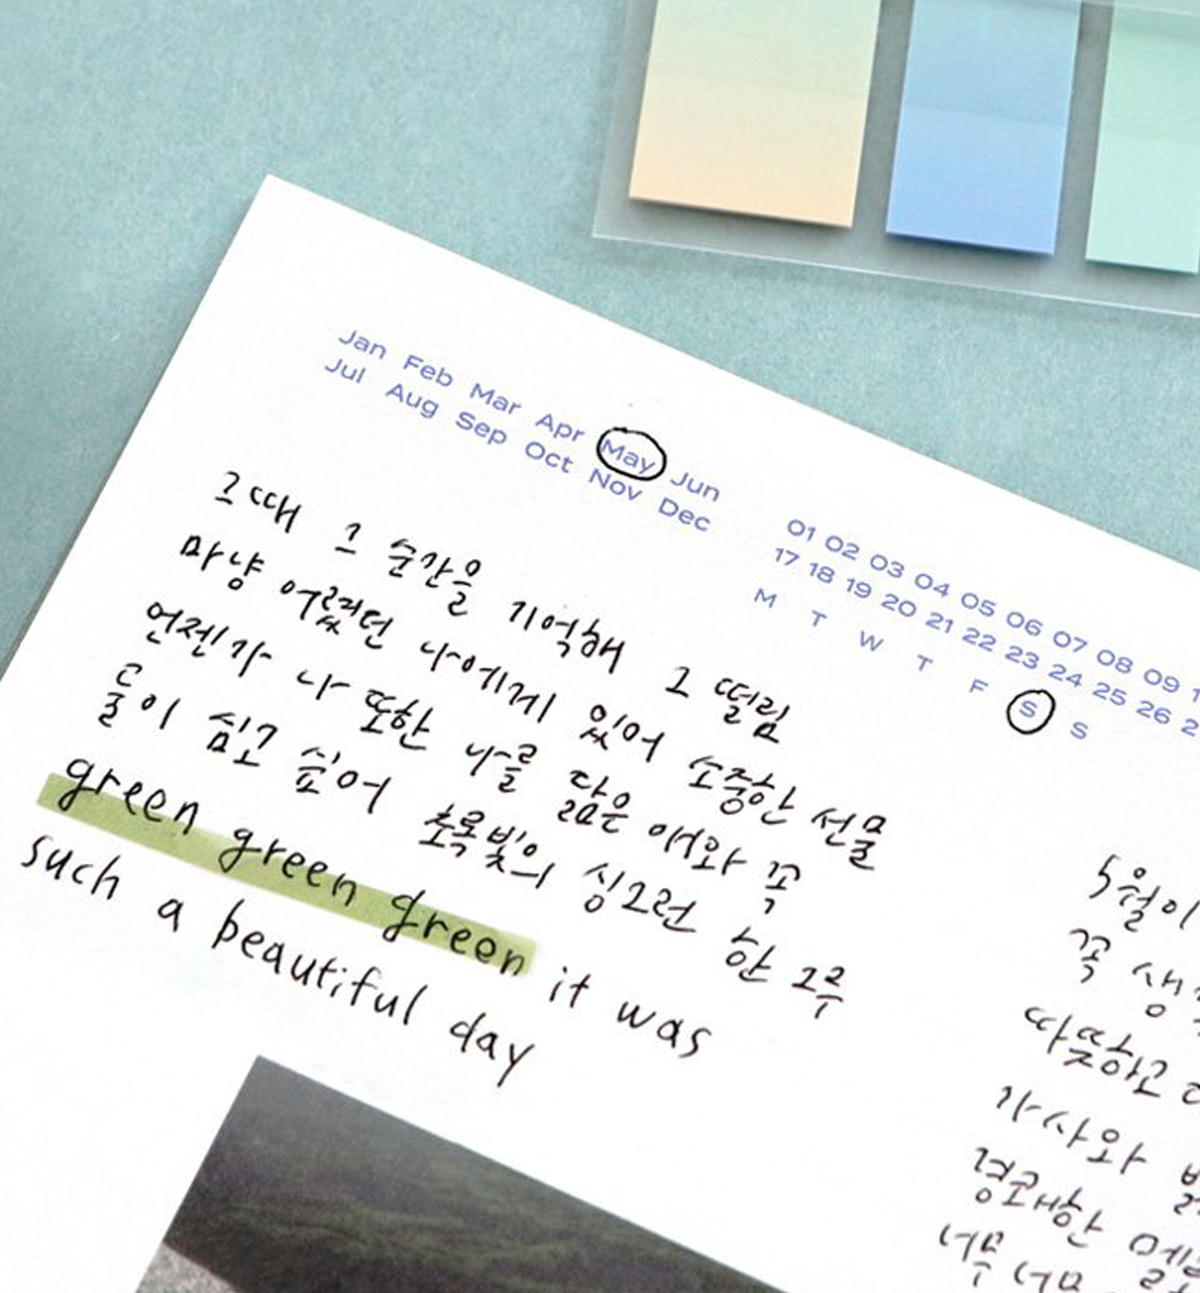 Jan Feb Mar Apr May Jun
Jul Aug Sep Oct Nov Dec
01 02 03 04 05 06 07 08 09
17 18 19 20 21 22 23 24 25 26
M T W T F S S
그때 그 순간을 기억해 그 떨림
마냥 어렸던 나에게 있어 소중한 선물
언젠가 나 또한 나를 닮은 애와 꼭
둘이 심고 싶어 초록빛의 싱그런 한 그루
green green green it was
such a beautiful day
5월이
꼭
따뜻하고
가사와
경쾌한
너무